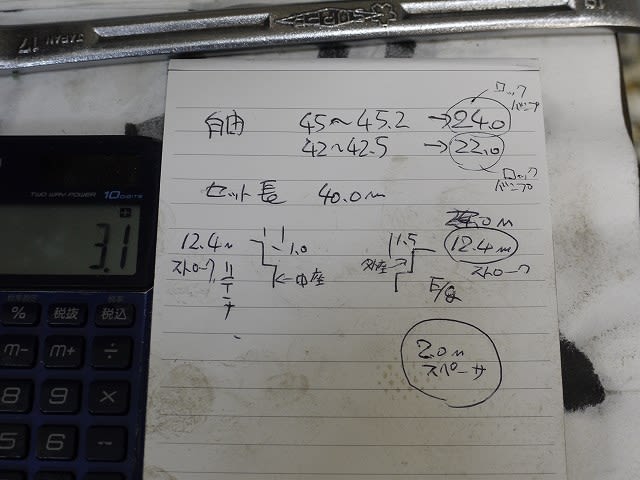 17 JAPAN
TWO WAY POWER 10 DIGITS
3.1
% 税抜 税込
m- m+ ÷
8 9 ×
5 6 -
ロック
バンプ
自由 45～45.2 → 24.0
42～42.5 → 22.0
ロック
バンプ
セット長 40.0m
.0m
12.4m 1.0 11.5 12.4m
ストローク ←中座 外座→ ストローク
リテーナ
2.0m
スペーサ